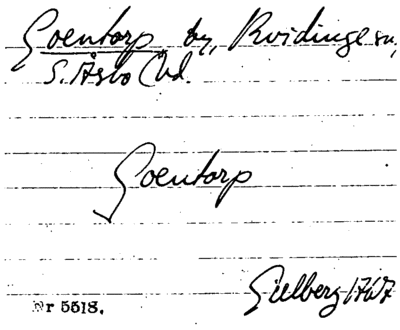 Goentorp by, Kvidinge sn,
S. Åsbo hd.
Goentorp
Gillberg 1767
Nr 5518.